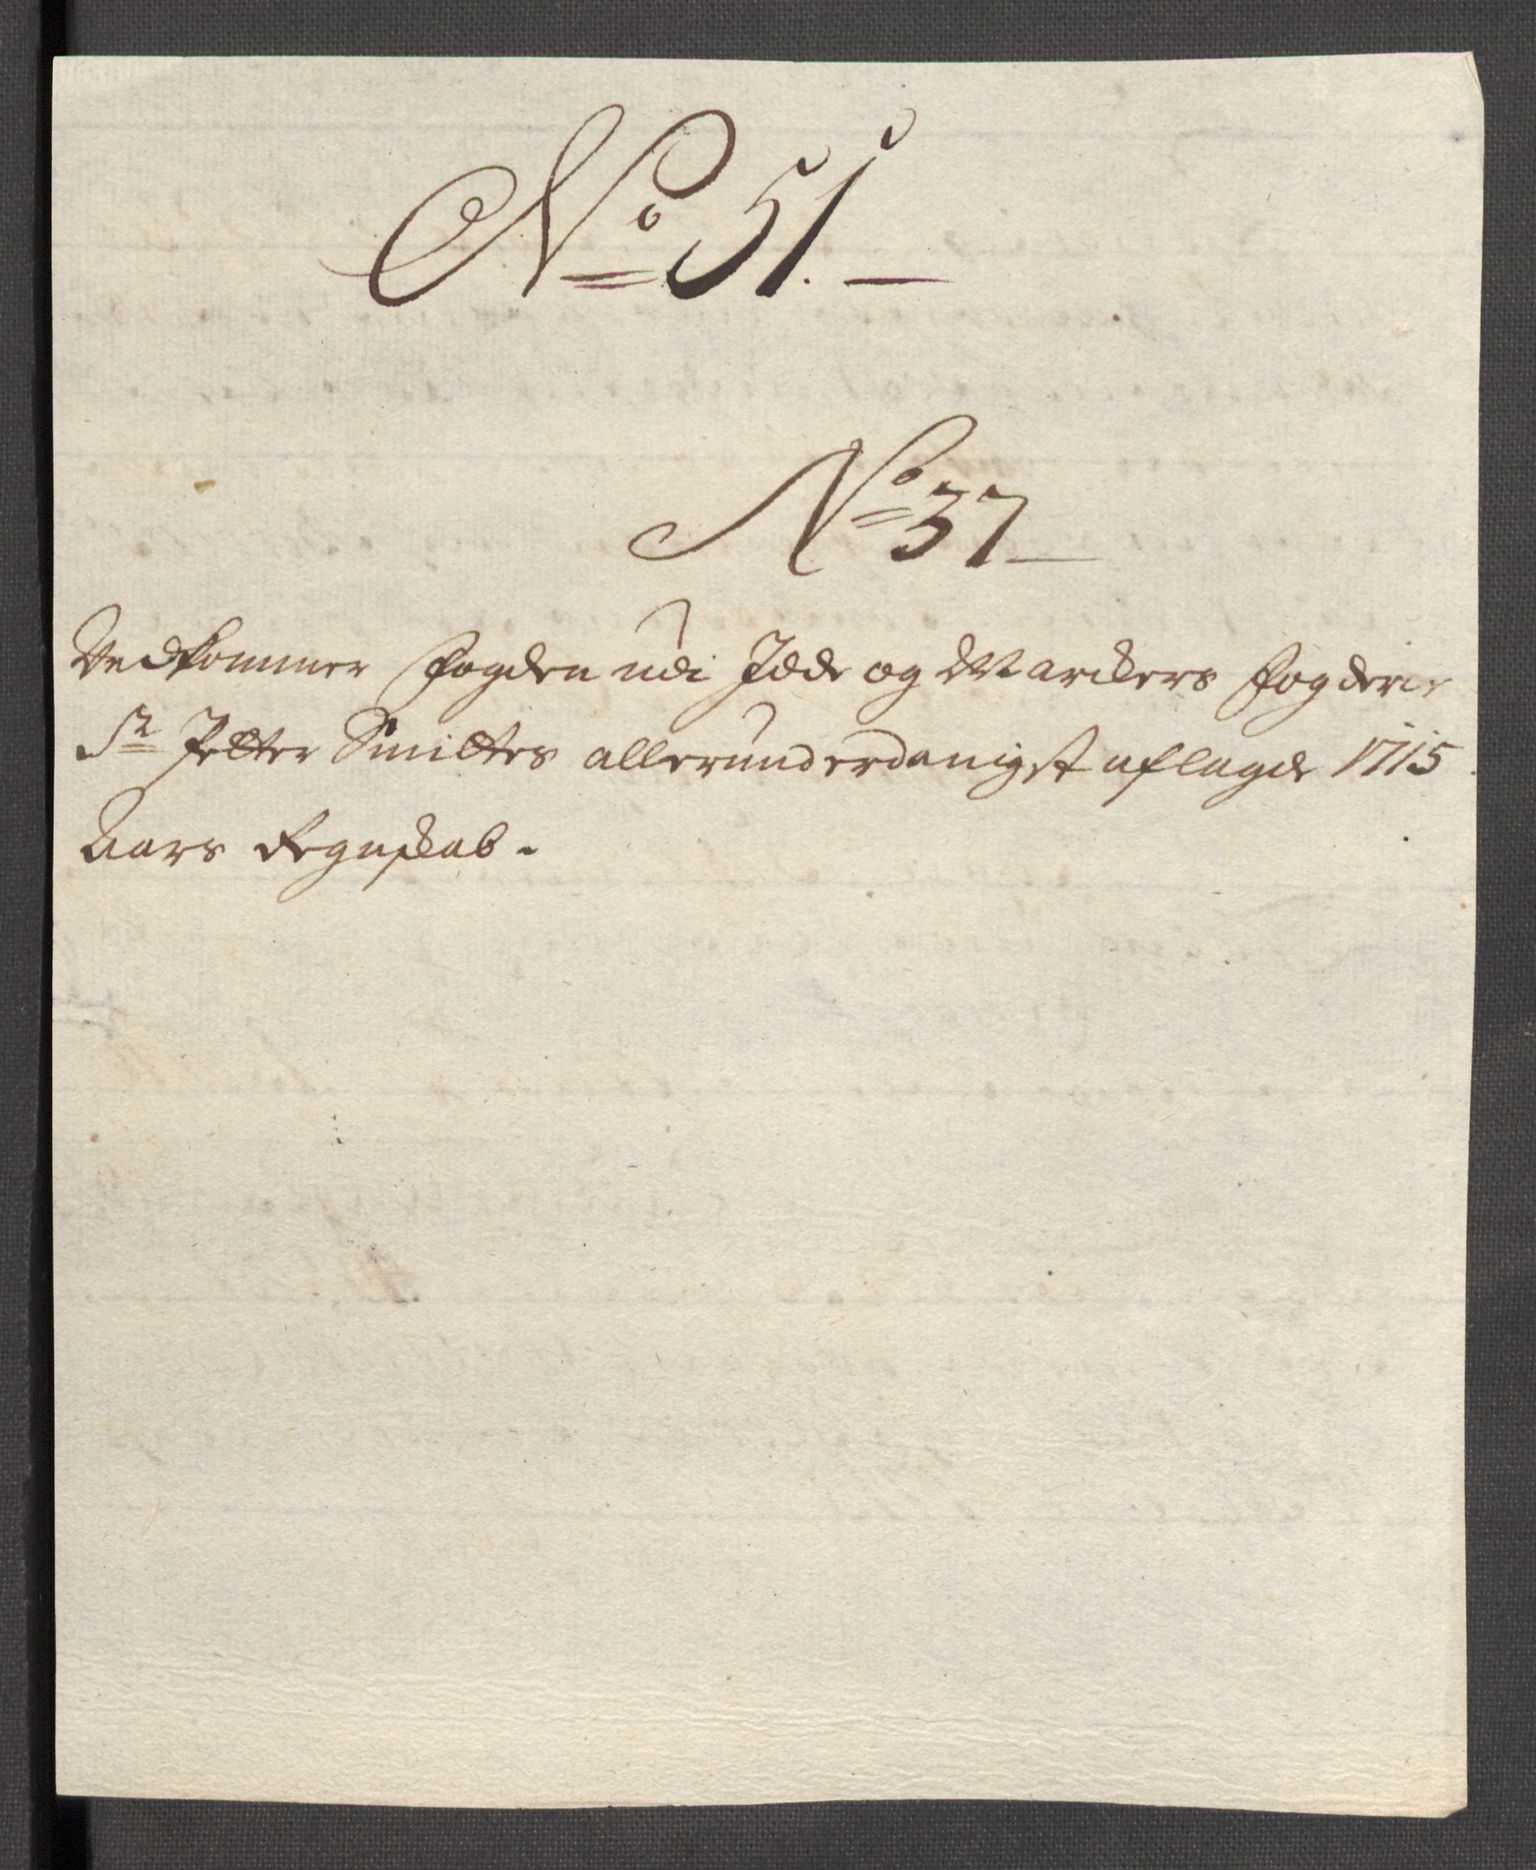 No 51.
No 37
Vedkommer fogden udi Idde og Markers fogderie
Sr Petter Smittes allerunderdanigst aflagde 1715
Aars Regnskab.